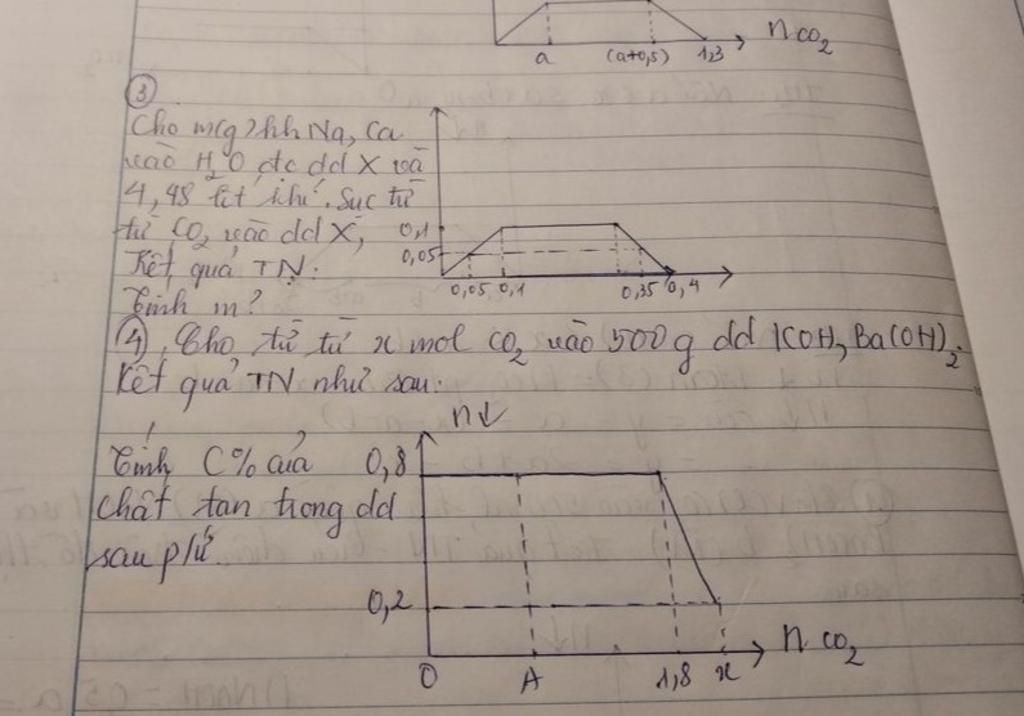 n CO₂
a (a+0,5) 1,3
③
Cho m(g) hh Na, Ca
vào H₂O đc dd X và
4,48 lít khí. Sục từ
từ CO₂ vào dd X,
Kết quả TN.
Tính m?
0,1
0,05
0,05 0,1 0,35 0,4
④. Cho từ từ x mol CO₂ vào 500g dd KOH, Ba(OH)₂.
Kết quả TN như sau.
n↓
Tính C% của
chất tan trong dd
sau pứ.
0,8
0,2
0 A 1,8 x
n CO₂